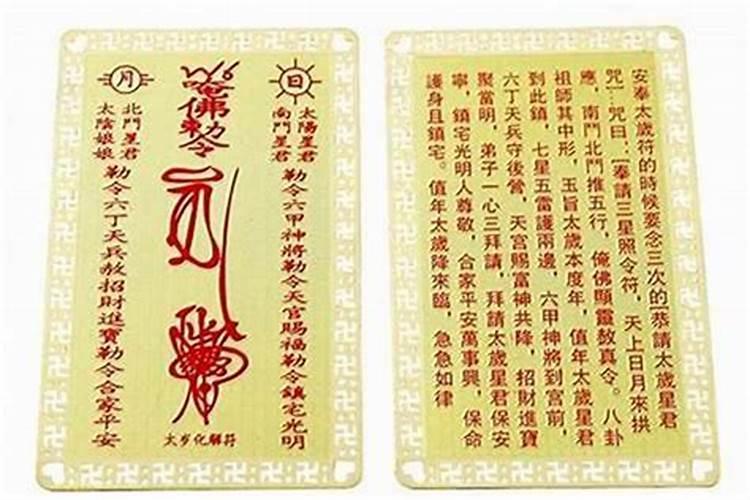 日
太陽星君
南鬥星君
勒令六甲神將勒令天官賜福勒令鎮宅光明
唵佛勅令
月
北鬥星君
太陰娘娘
勒令六丁天兵赦招財進寶勒令合家平安
太岁化解符
安奉太歲符的時候要念三次的[恭請太歲星君
咒︰咒曰︰[奉請三星照令符，天上日月來拱
應，南鬥北鬥推五行，俺佛顯靈敖真令。八卦
祖師其中形，玉旨太歲本度年，值年太歲星君
到此鎮，七星五雷護兩邊，六甲神將到宮前，
六丁天兵守後營，天宮賜富神共降，招財進寶
聚當明，弟子一心三拜請，拜請太歲星君保安
寧，鎮宅光明人尊敬，合家平安萬事興，保命
護身且鎮宅。值年太歲降來臨，急急如律